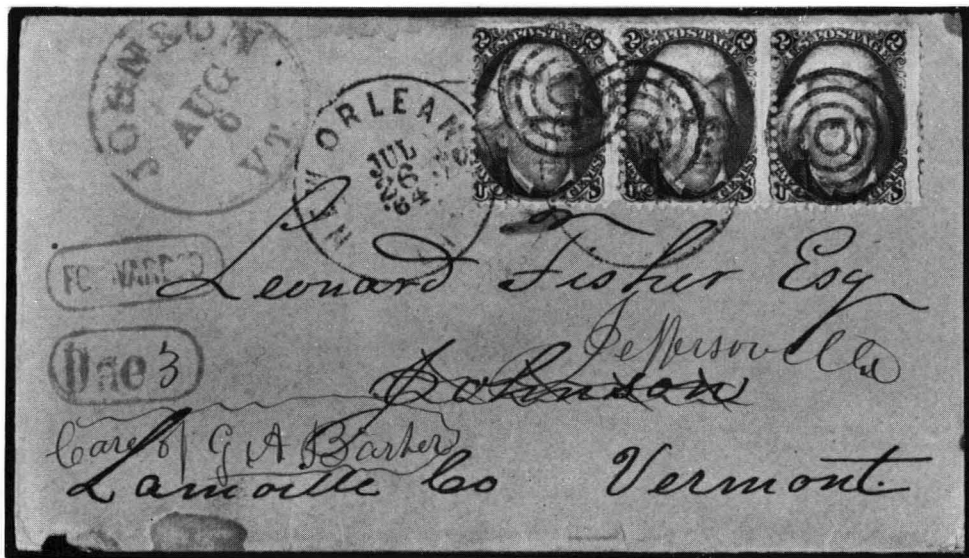 JOHNSON
AUG
6
VT
ORLEAN
JUL
26
'64
2 U.S. POSTAGE 2
2 U.S. POSTAGE 2
2 U.S. POSTAGE 2
FORWARDED
Leonard Fisher Esq
Jeffersonville
Due 3
Johnson
Care of G A Barber
Lamoille Co Vermont.